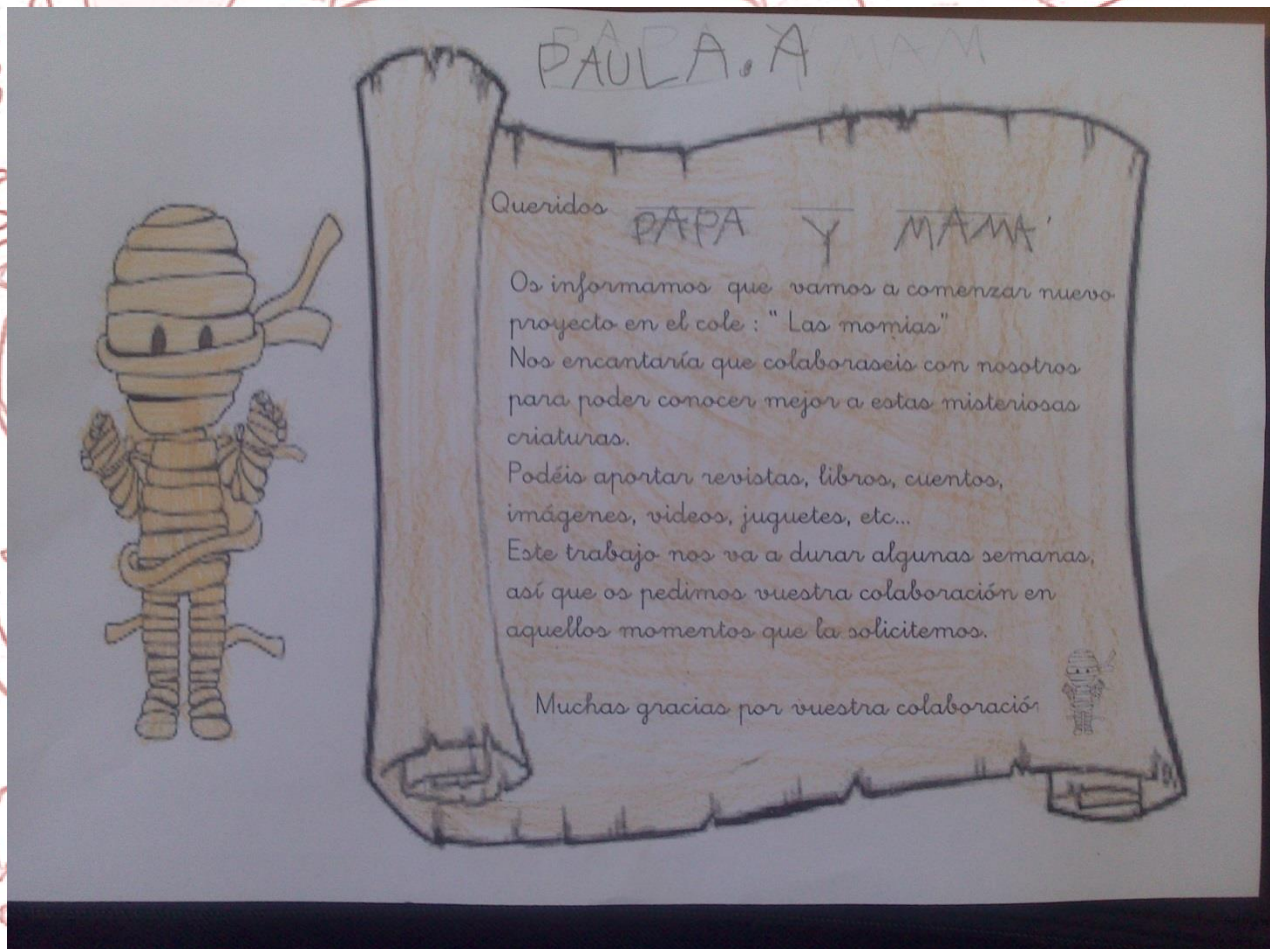 PAULA.A
Queridos PAPA Y MAMA
Os informamos que vamos a comenzar nuevo
proyecto en el cole : " Las momias"
Nos encantaría que colaboraseis con nosotros
para poder conocer mejor a estas misteriosas
criaturas.
Podéis aportar revistas, libros, cuentos,
imágenes, videos, juguetes, etc...
Este trabajo nos va a durar algunas semanas,
así que os pedimos vuestra colaboración en
aquellos momentos que la solicitemos.
Muchas gracias por vuestra colaboración